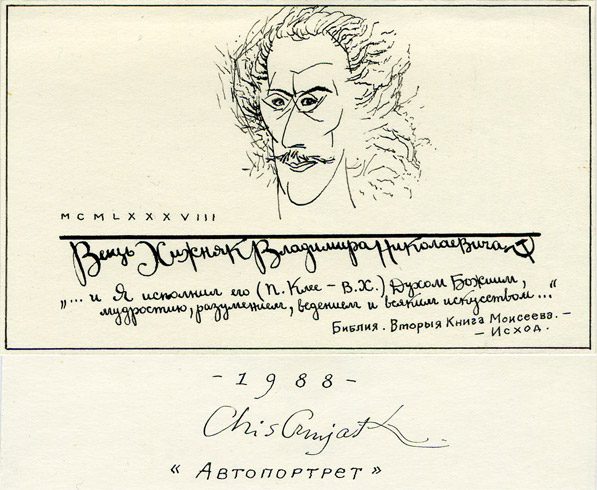 MCMLXXXVIII
Вещь Хижняк Владимира Николаевича
„... и Я исполнил его (П. Клее - В.Х.) Духом Божиим,
мудростию, разумением, ведением и всяким искусством..."
Библия. Вторыя Книга Моисеева. -
- Исход.
- 1988 -
« Автопортрет »